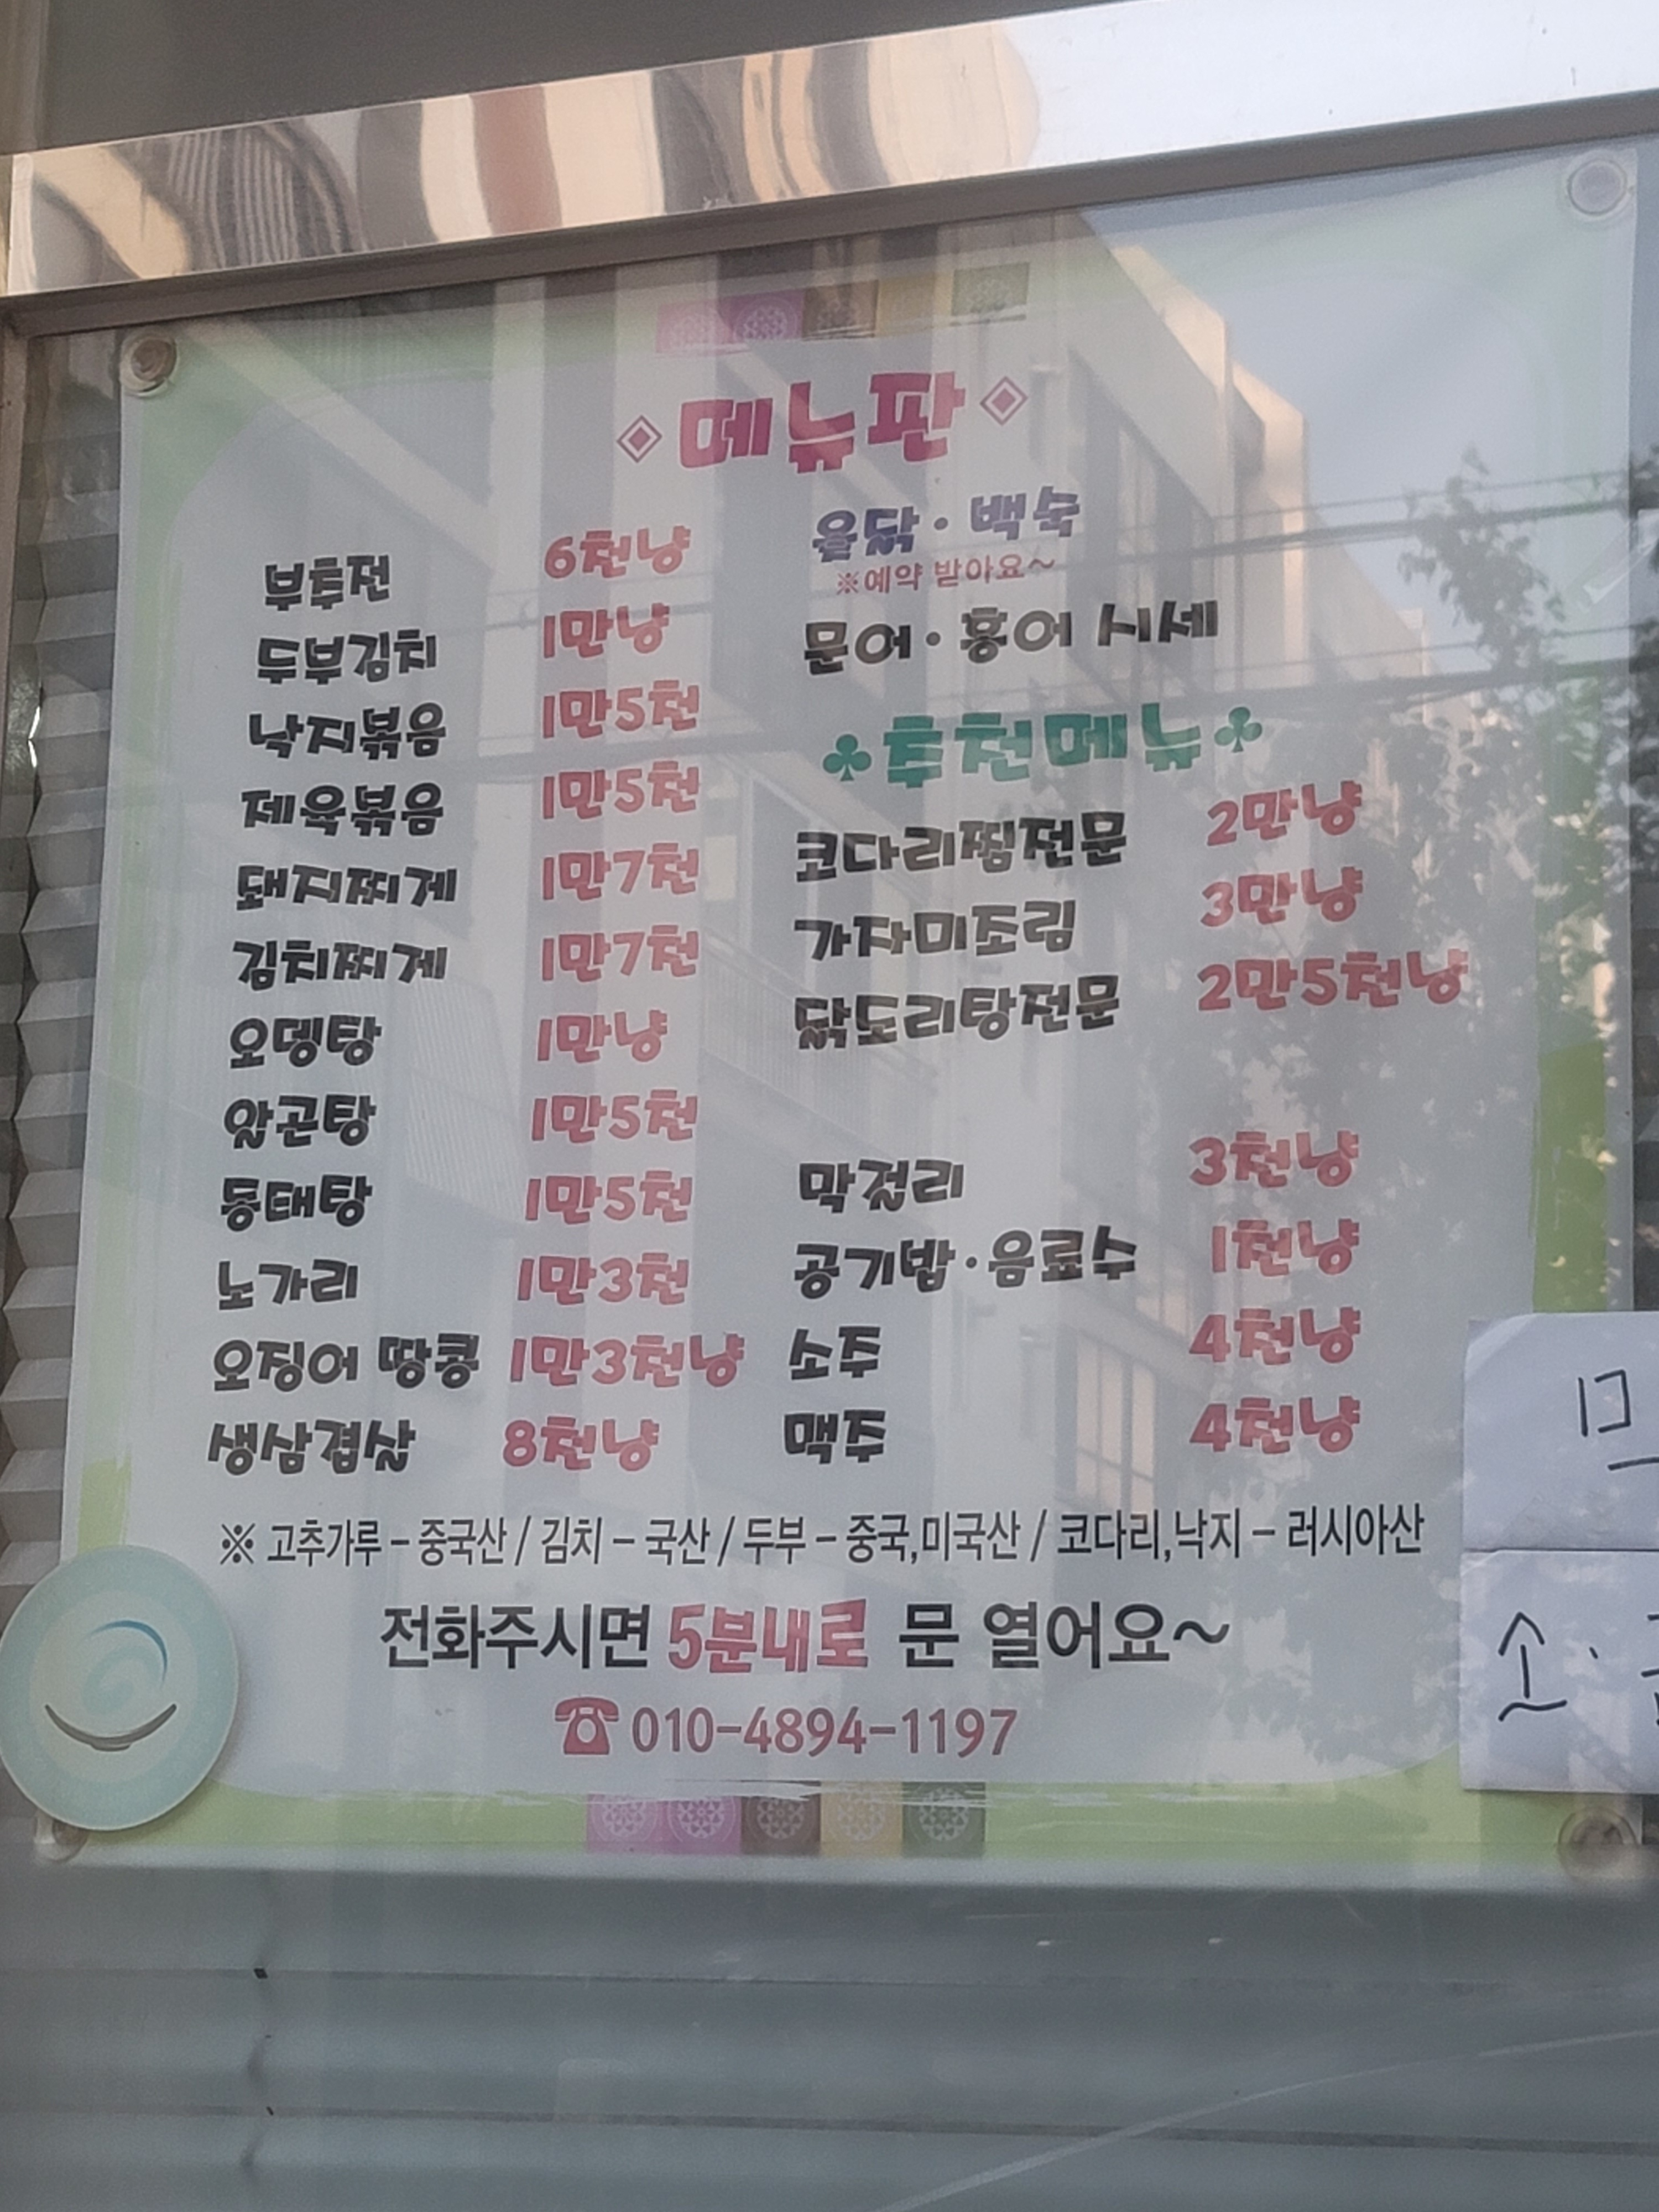 메뉴판
부추전 6천냥
두부김치 1만냥
낙지볶음 1만5천
제육볶음 1만5천
돼지찌게 1만7천
김치찌게 1만7천
오뎅탕 1만냥
알곤탕 1만5천
동태탕 1만5천
노가리 1만3천
오징어 땅콩 1만3천냥
생삼겹살 8천냥
옻닭·백숙
※예약 받아요~
문어·홍어 시세
♣추천메뉴♣
코다리찜전문 2만냥
가자미조림 3만냥
닭도리탕전문 2만5천냥
막걸리 3천냥
공기밥·음료수 1천냥
소주 4천냥
맥주 4천냥
※ 고추가루 - 중국산 / 김치 - 국산 / 두부 - 중국,미국산 / 코다리,낙지 - 러시아산
전화주시면 5분내로 문 열어요~
☎010-4894-1197